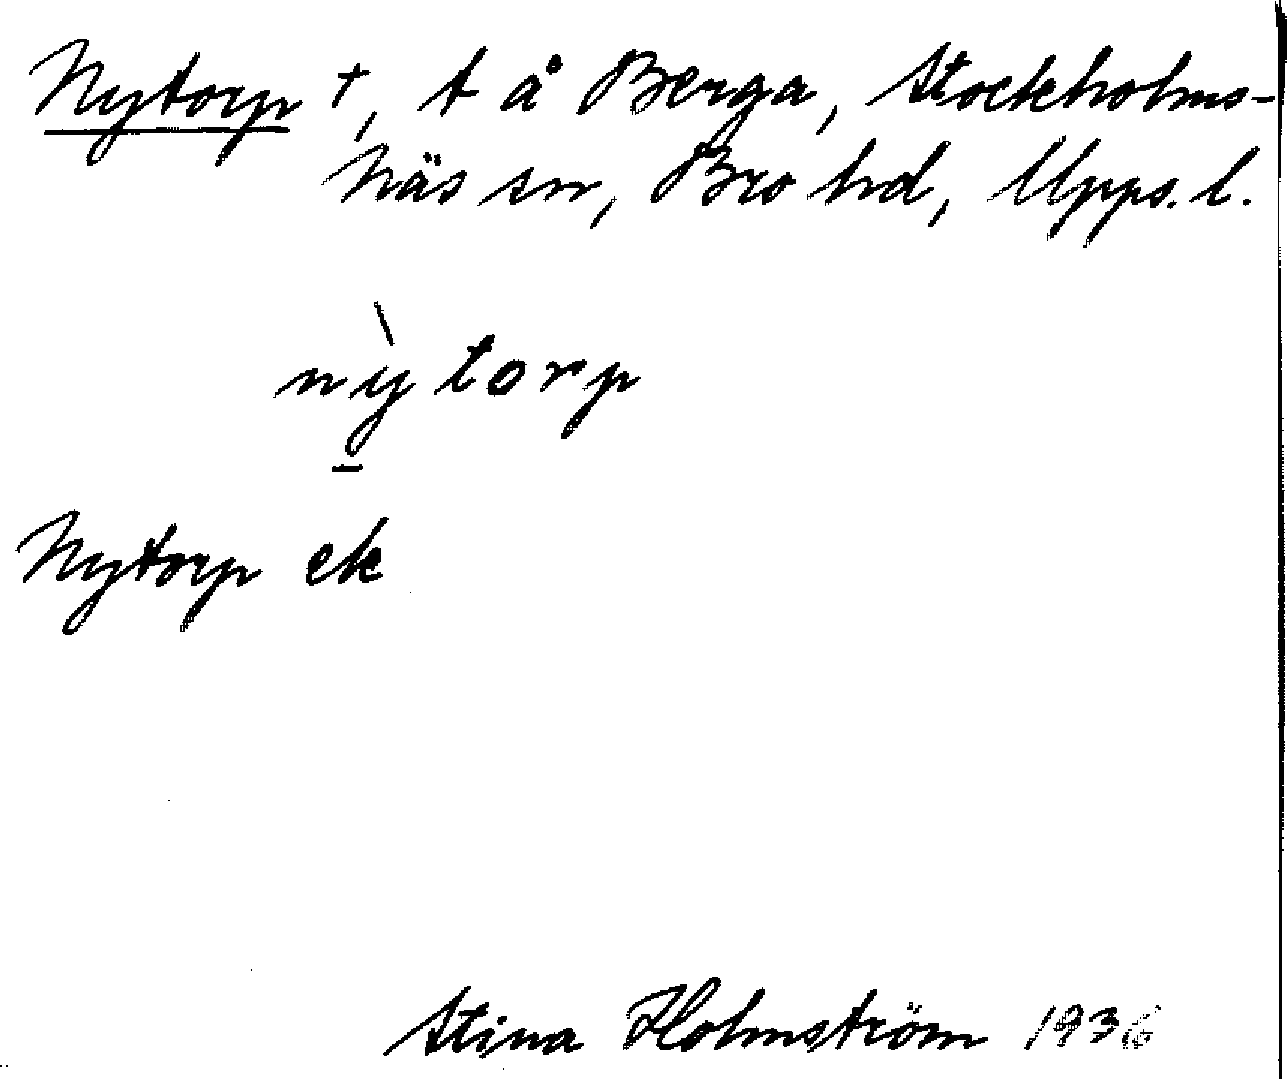 Nytorp +, t å Berga, Stockholms-
näs sn, Bro hd, Upps. l.
nỳtorp
Nytorp ek
Stina Holmström 1936